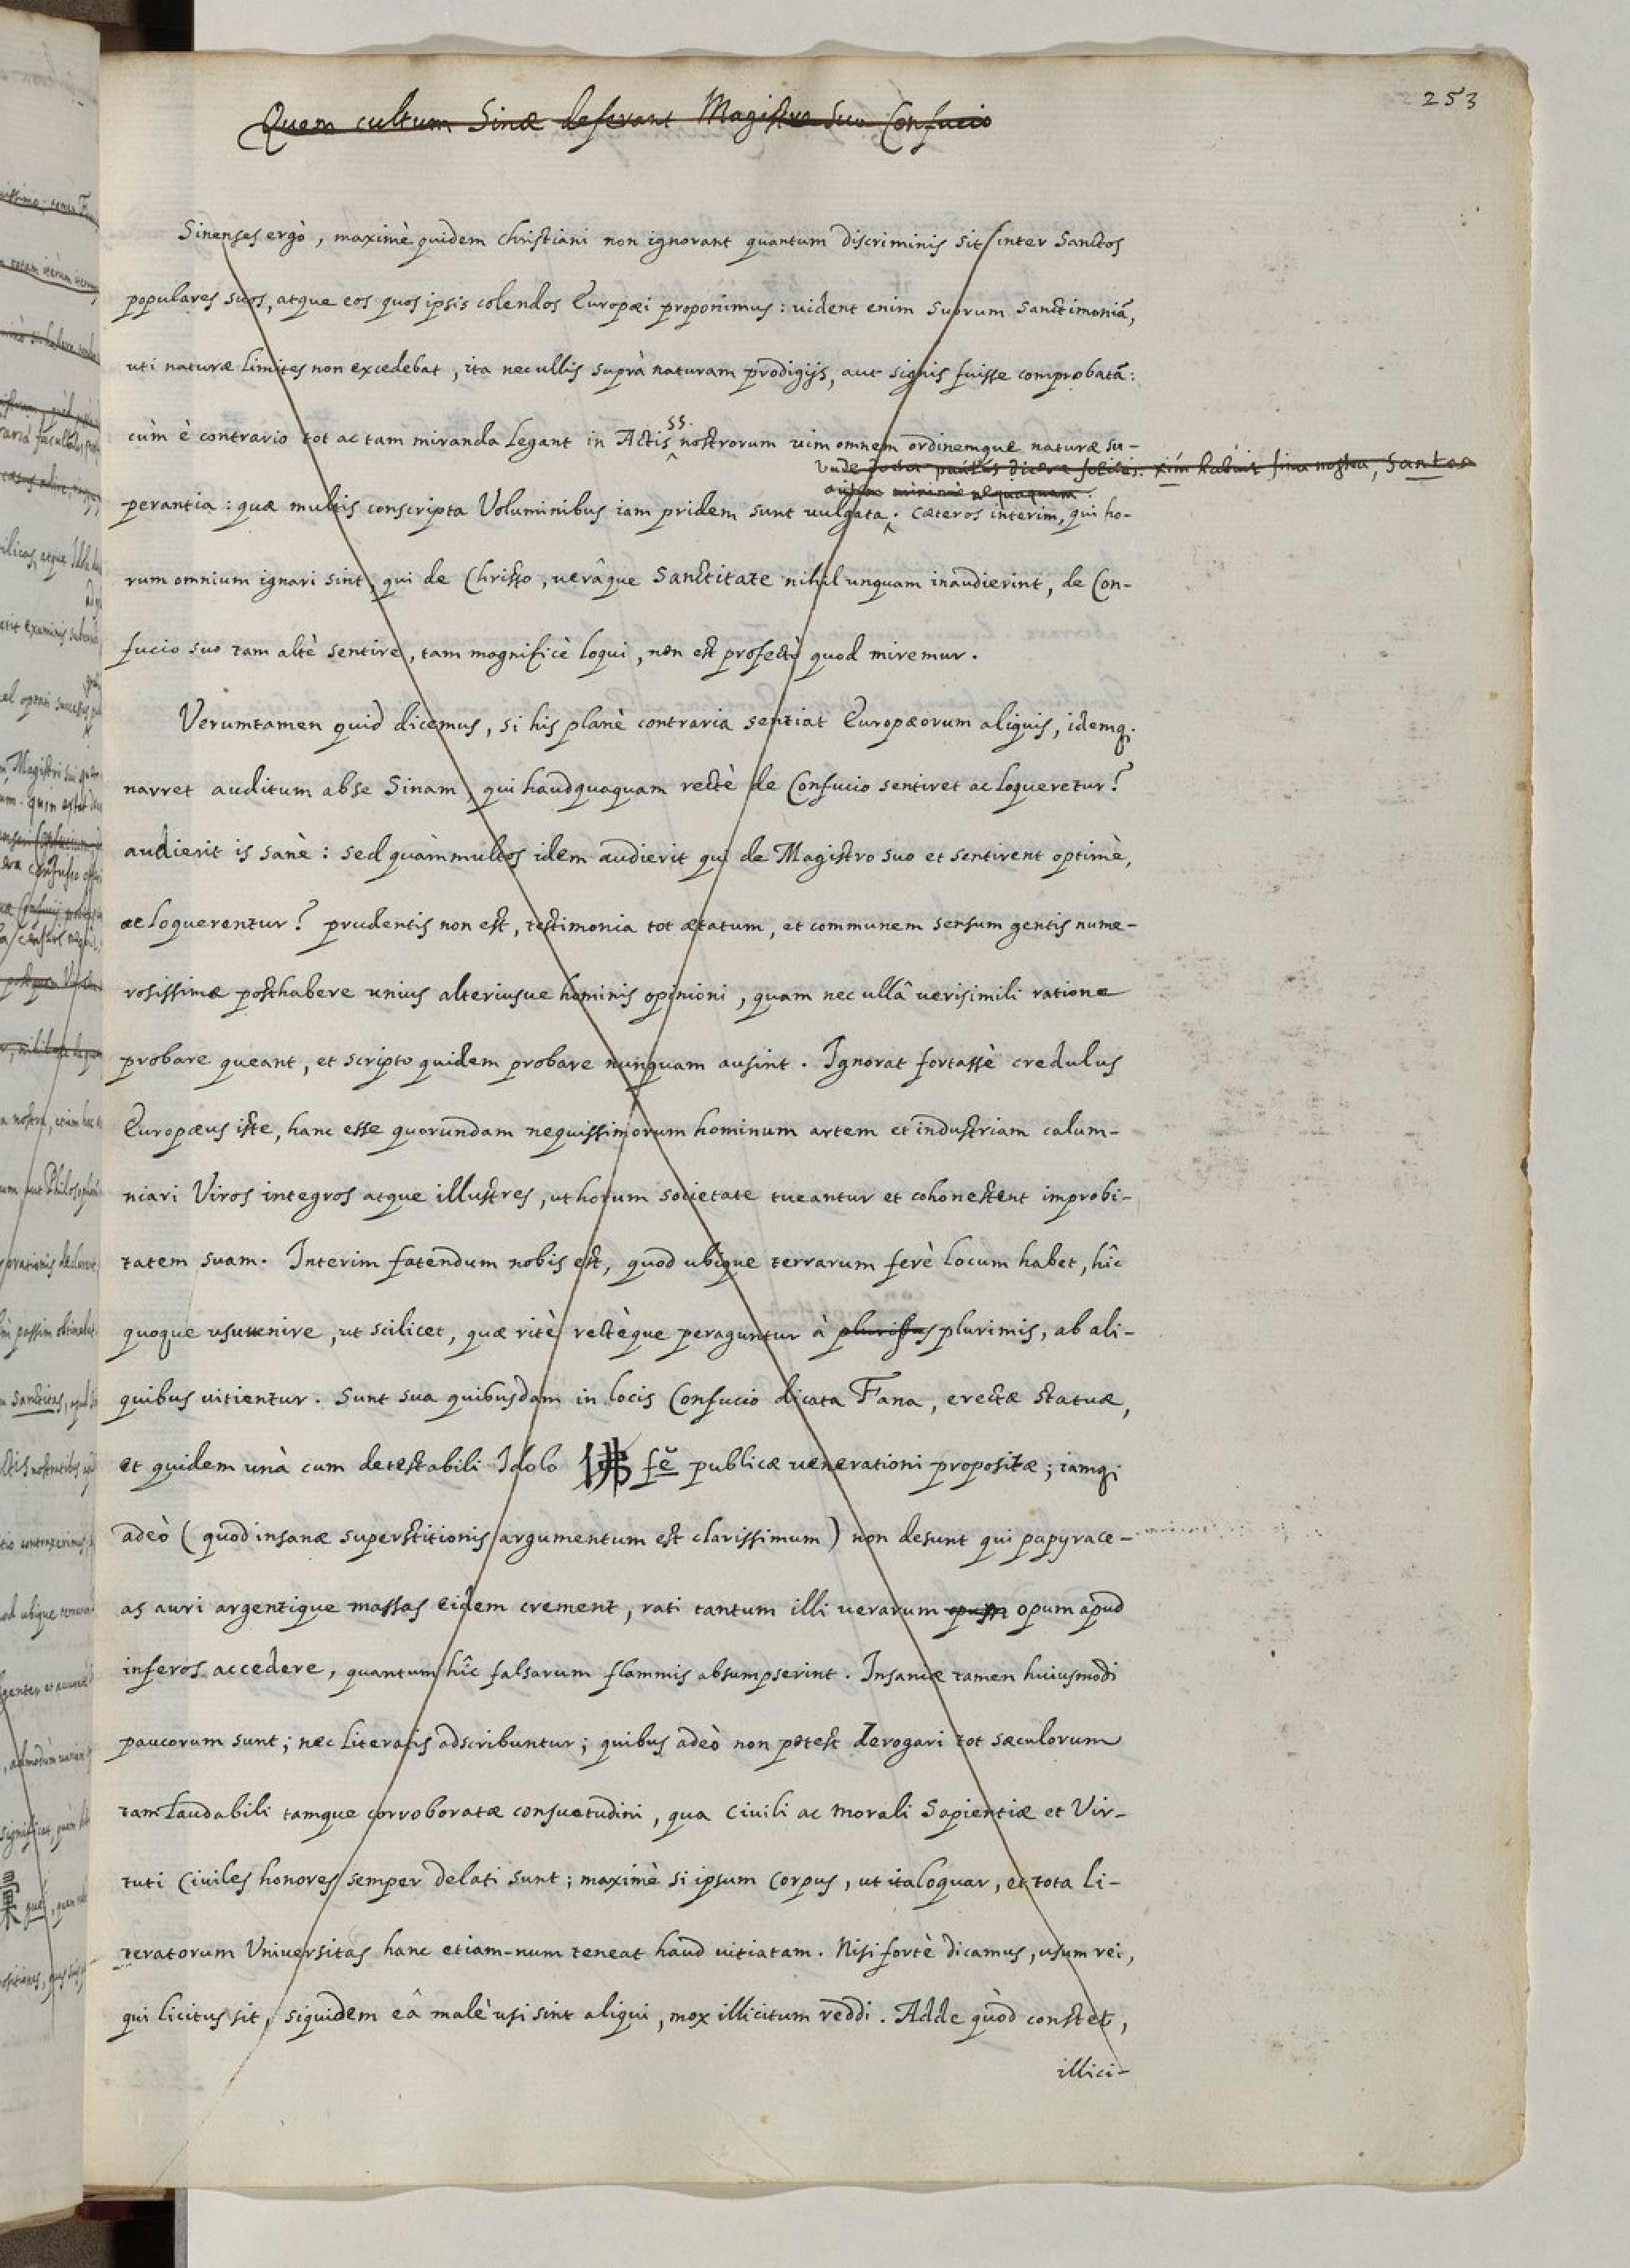 253
Quem cultum Sinæ deferant Magistro suo Confucio
Sinenses ergò, maximè quidem christiani non ignorant quantum discriminis sit inter Sanctos
populares suos, atque eos quos ipsis colendos Europæi proponimus: uident enim suorum sanctimoniã,
uti naturæ limites non excedebat, ita nec ullis suprà naturam prodigijs, aut signis fuisse comprobatã:
cùm è contrario tot ac tam miranda legant in Actis SS. nostrorum uim omnem ordinemque naturæ su-
Unde dicere habuit sina nostra, Santos
autem minimè nequaquam.
perantia: quæ multis conscripta Voluminibus iam pridem sunt uulgata. cæteros interim, qui ho-
rum omnium ignari sint, qui de Christo, uerâque Sanctitate nihil unquam inaudierint, de Con-
fucio suo tam altè sentire, tam magnificè loqui, non est profectò quod miremur.
Verumtamen quid dicemus, si his planè contraria sentiat Europæorum aliquis, idemq;
narret auditum abse Sinam, qui haudquaquam rectè de Confucio sentiret ac loqueretur?
audierit is sanè: sed quàm multos idem audierit qui de Magistro suo et sentirent optimè,
ac loquerentur? prudentis non est, testimonia tot ætatum, et communem sensum gentis nume-
rosissimæ posthabere unius alteriusue hominis opinioni, quam nec ullâ uerisimili ratione
probare queant, et scripto quidem probare nunquam ausint. Ignorat fortassè credulus
Europæus iste, hanc esse quorundam nequissimorum hominum artem et industriam calum-
niari Viros integros atque illustres, ut horum societate tueantur et cohonestent improbi-
tatem suam. Interim fatendum nobis est, quod ubique terrarum ferè locum habet, hîc
quoque usuuenire, ut scilicet, quæ ritè rectèque peraguntur à plurimis, ab ali-
quibus uitientur. Sunt sua quibusdam in locis Confucio dicata Fana, erectæ statuæ,
et quidem unà cum detestabili Idolo 佛 fĕ publicæ uenerationi propositæ; iamq;
adeò (quod insanæ superstitionis argumentum est clarissimum) non desunt qui papyrace-
as auri argentique massas eidem crement, rati tantum illi uerarum opum opum apud
inferos accedere, quantum hîc falsarum flammis absumpserint. Insaniæ tamen huiusmodi
paucorum sunt; nec literatis adscribuntur; quibus adeò non potest derogari tot sæculorum
tam laudabili tamque corroboratæ consuetudini, qua civili ac morali Sapientiæ et Vir-
tuti Civiles honores semper delati sunt; maximè si ipsum Corpus, ut ita loquar, et tota li-
teratorum Uniuersitas hanc etiam-num teneat haud uitiatam. Nisi fortè dicamus, usum rei,
qui licitus sit, siquidem eâ malè usi sint aliqui, mox illicitum reddi. Adde quòd constet,
illici-